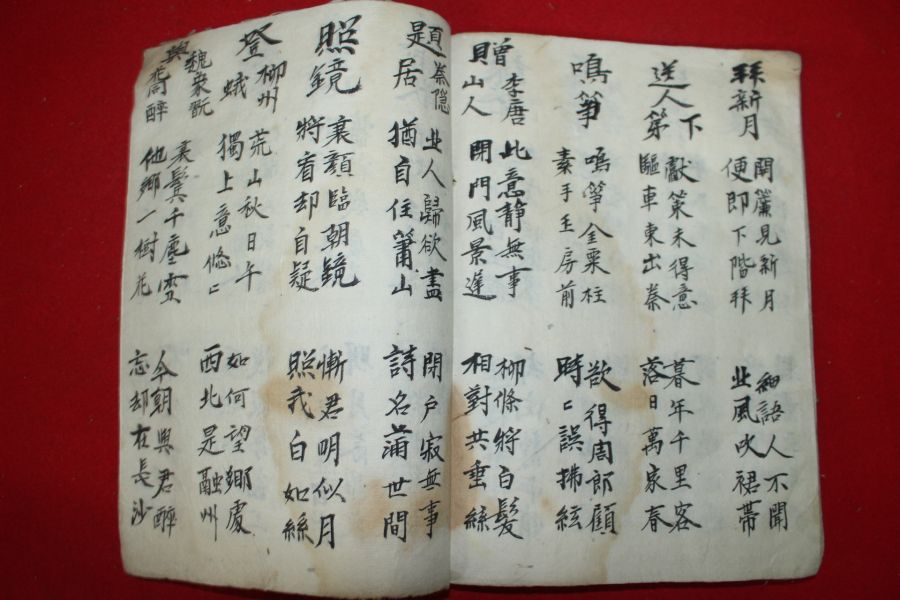 拜新月
開簾見新月
便即下階拜
細語人不聞
北風吹裙帶
送人下第
獻策未得意
驅車東出秦
暮年千里客
落日萬家春
鳴箏
鳴箏金粟柱
素手玉房前
欲得周郎顧
時〻誤拂絃
贈李唐山人
此意靜無事
閉門風景遲
柳條將白髮
相對共垂絲
題秦隱居
北人歸欲盡
猶自住蕭山
閉户寂無事
詩名滿世間
照鏡
衰顔臨朝鏡
將看却自疑
慚君明似月
照我白如絲
登柳州蛾
荒山秋日午
獨上意悠〻
如何望鄉處
西北是融州
衰鬢千莖雪
他鄉一樹花
今朝與君醉
忘却在長沙